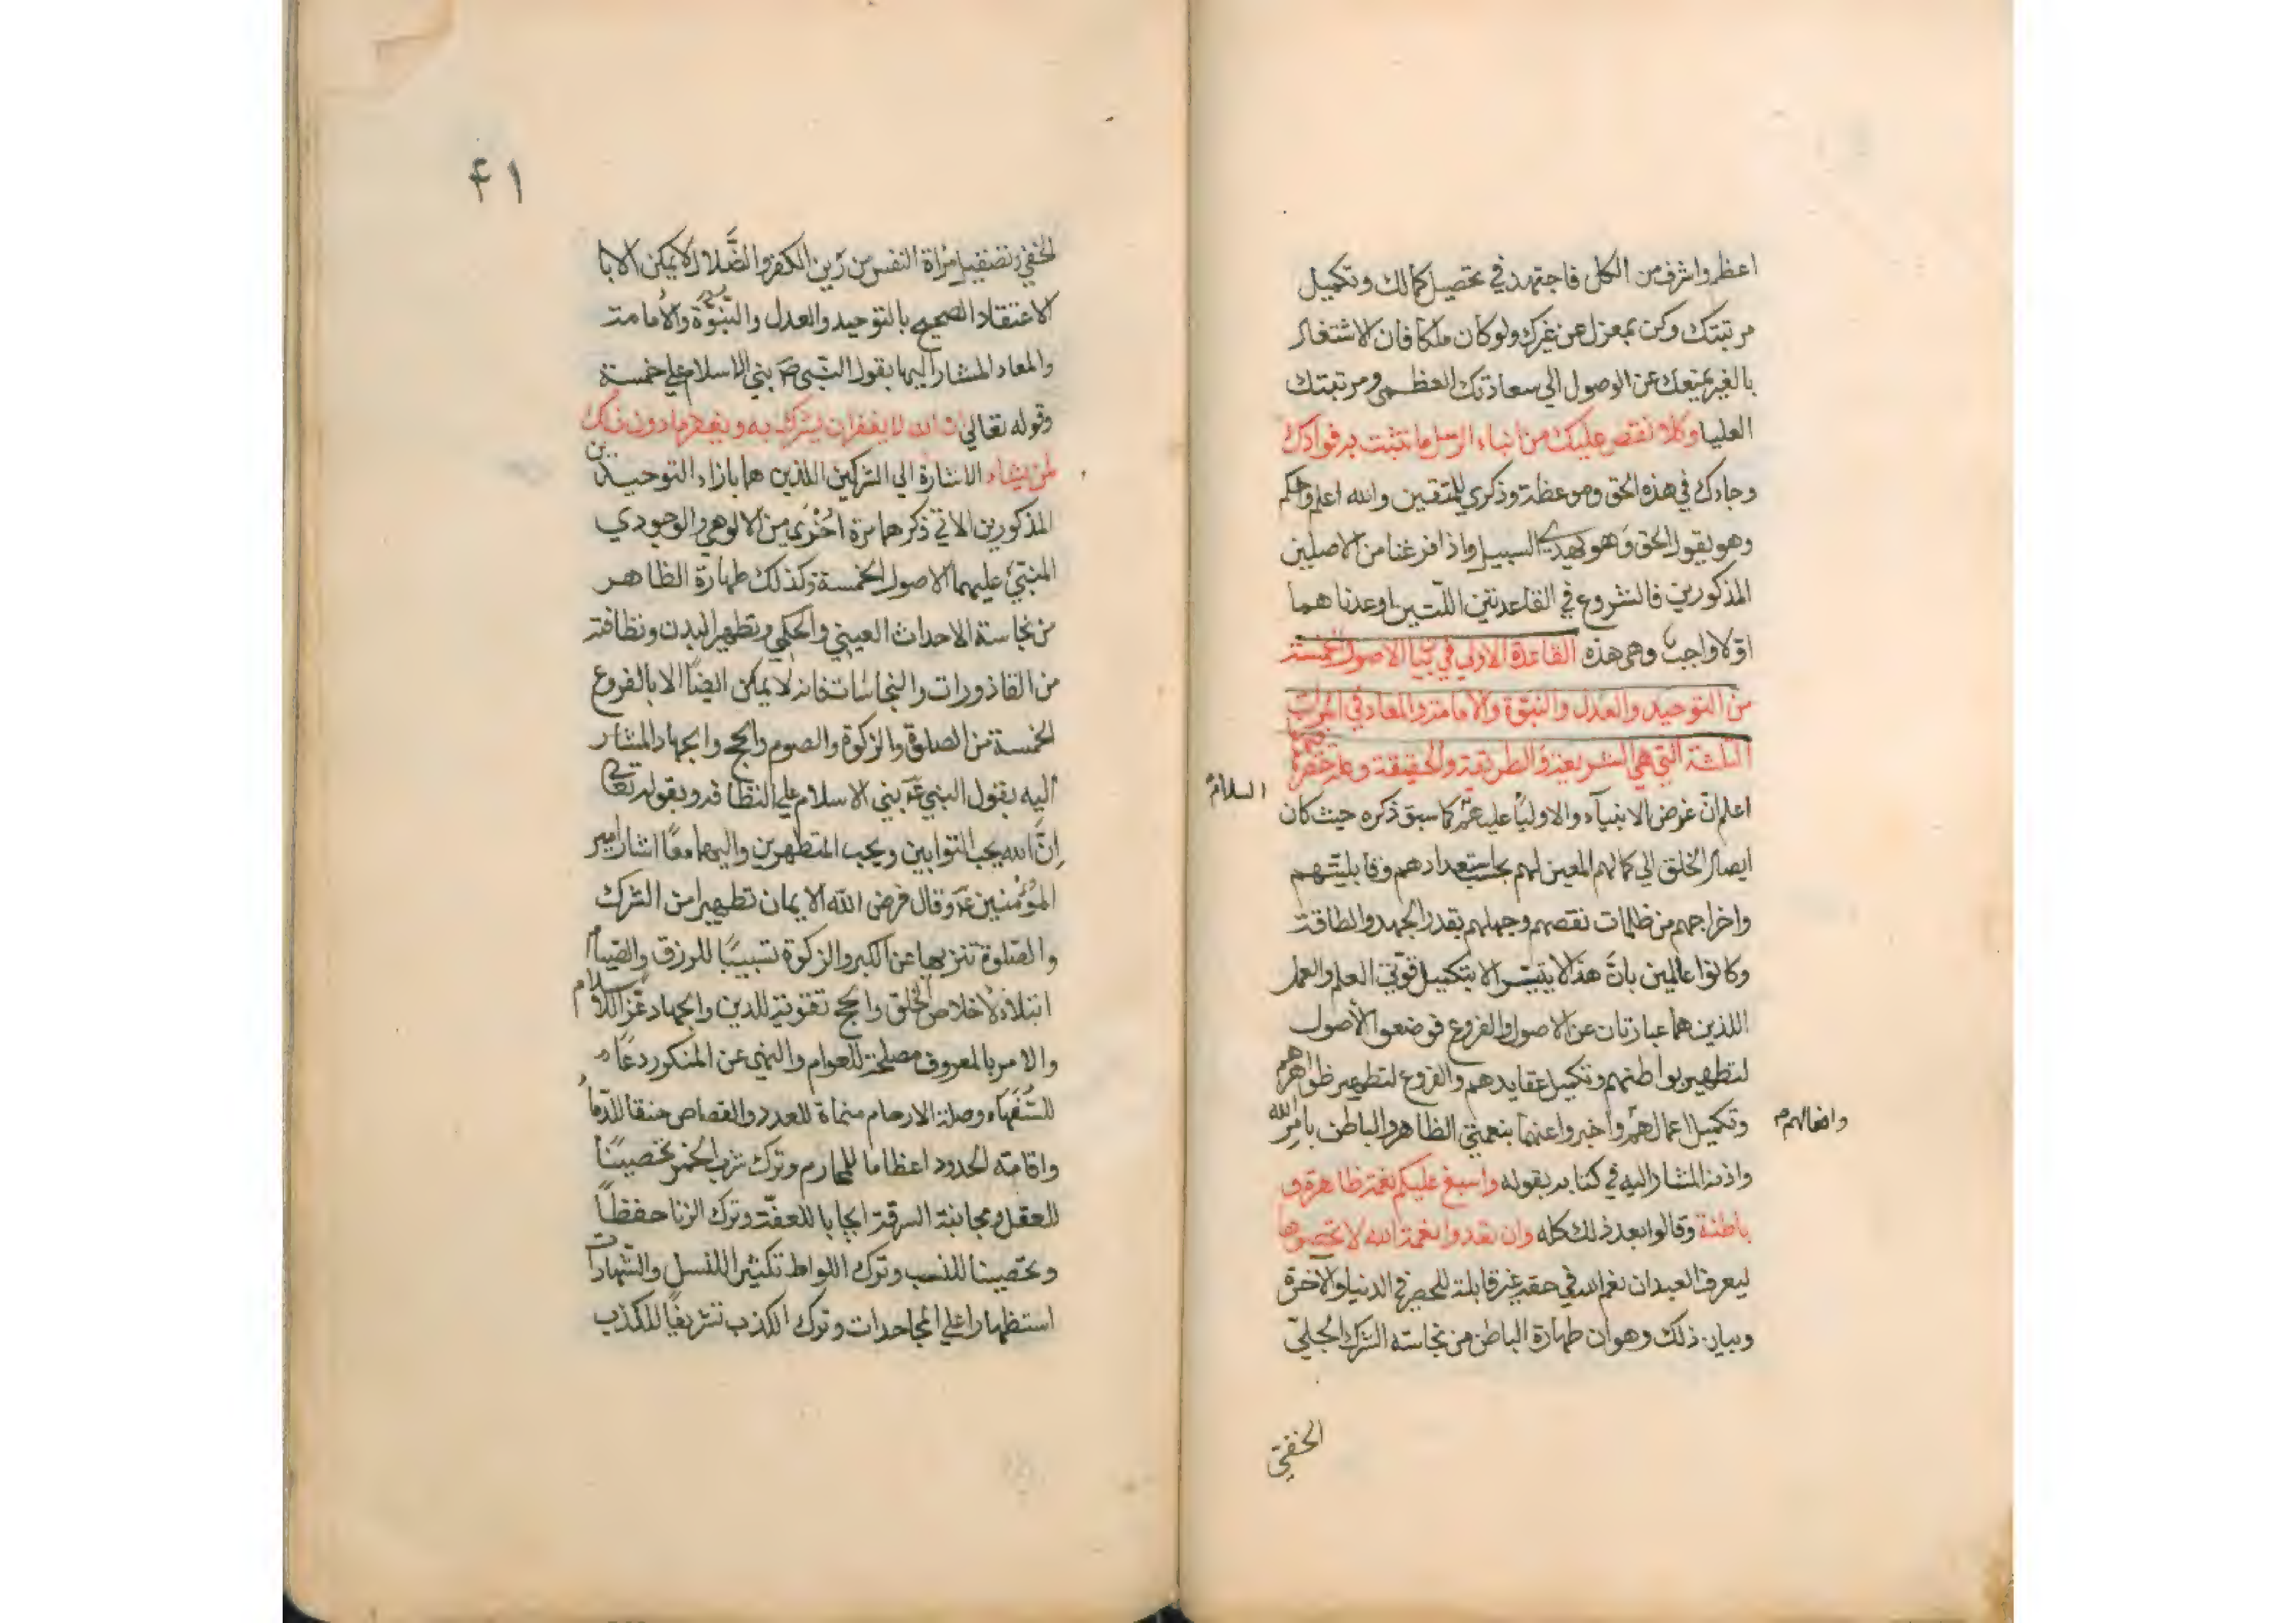 اعظم واشرف من الكل فاجتهد في تحصيل كمالك وتكميل
مرتبتك وكن بمعزل عن غيرك ولو كان ملكا فان الاشتغال
بالغير يمنعك عن الوصول الي سعادتك العظمى ومرتبتك
العليا وكلا نقص عليك من انباء الرسل ما نثبت به فوادك
وجاءك في هذه الحق وموعظة وذكري للمتقين والله اعلم واحكم
وهو يقول الحق وهو يهدي السبيل واذا فرغنا من الاصلين
المذكورين فالنشروع في القاعدتين اللتين اوعدنا هما
اولا واجب وهي هذه القاعدة الاولي في بيان الاصول الخمسة
من التوحيد والعدل والنبوة والامامة والمعاد في المراتب
الثلثة التي هي الشريعة والطريقة والحقيقة وعلة حصرها
اعلم ان غرض الانبياء والاولياء عليهم كما سبق ذكره حيث كان
السلام
ايصال الخلق الي كمالهم المعين لهم بحسب استعدادهم وقابليتهم
واخراجهم من ظلمات نقصهم وجهلهم بقدر الجهد والطاقة
وكانوا عالمين بان هذا لا يتيسر الا بتكميل قوتي العلم والعمل
اللذين هما عبارتان عن الاصول والفروع فوضعوا الأصول
لتطهير بواطنهم وتكميل عقايدهم والفروع لتطهير ظواهرهم
وتكميل اعمالهم واخبروا عنهما بنعمتي الظاهر والباطن بامر الله
وافعالهم
واذنه المشار اليه في كتابه بقوله واسبغ عليكم نعمه ظاهرة و
باطنة وقالوا بعد ذلك كله وان تعدوا نعمة الله لا تحصوها
ليعرف العبد ان نعم الله في حقه غير قابلة للحصر في الدنيا والآخرة
وبيان ذلك وهو ان طهارة الباطن من نجاسة الشرك الجلي
الخفي
۴۱
الخفي وتصقيل مرأة النفس من رين الكفر والضلال لا يمكن الا با
الاعتقاد الصحيح بالتوحيد والعدل والنبوة والأمامة
والمعاد المشار اليها بقول النبي ص بني الاسلام علي خمسة
وقوله تعالي ان الله لا يغفر ان يشرك به ويغفر ما دون ذلك
لمن يشاء الاشارة الي الشركين اللذين هما بازاء التوحيدين
المذكورين الاتي ذكرهما مرة أخرى من الالوهي والوجودي
المبني عليهما الاصول الخمسة وكذلك طهارة الظاهر
من نجاسة الاحداث العيني والحكمي وتطهير البدن ونظافته
من القاذورات والنجاسات فانه لا يمكن ايضا الا بالفروع
الخمسة من الصلوة والزكوة والصوم والحج والجهاد المشار
اليه بقول النبي ع بني الاسلام علي النظافة وبقوله تعالي
إن الله يحب التوابين ويحب المتطهرين واليهما معا اشار امير
المؤمنين ع وقال فرض الله الايمان تطهيرا من الشرك
والصلوة تنزيها عن الكبر والزكوة تسبيبا للرزق والصيام
ابتلاء لأخلاص الخلق والحج تقوية للدين والجهاد عزا للاسلام
والامر بالمعروف مصلحة للعوام والنهي عن المنكر ردعا
للسفهاء وصلة الارحام منماة للعدد والقصاص حقنا للدماء
واقامة الحدود اعظاما للمحارم وترك شرب الخمر تحصينا
للعقل ومجانبة السرقة ايجابا للعفة وترك الزنا حفظا
وتحصينا للنسب وترك اللواط تكثيرا للنسل والشهادات
استظهارا علي المجاحدات وترك الكذب تشريفا للكذب